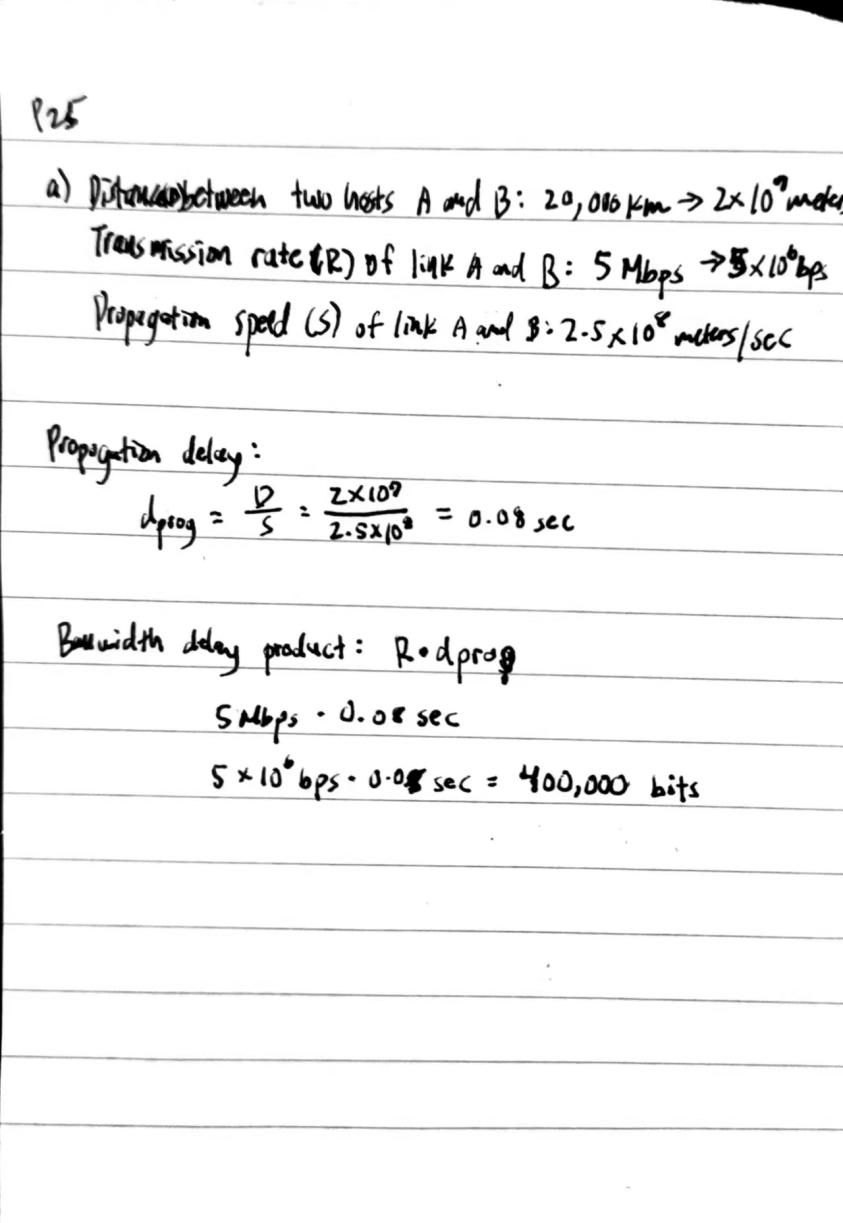 P25
a) Distance between two hosts A and B: 20,000 km → 2×10⁷ meters
Transmission rate (R) of link A and B: 5 Mbps → 5×10⁶ bps
Propagation speed (S) of link A and B: 2.5×10⁸ meters/sec
Propagation delay:
dprog = D/S = 2×10⁷/2.5×10⁸ = 0.08 sec
Bandwidth delay product: R • dprog
5 Mbps · 0.08 sec
5 × 10⁶ bps · 0.08 sec = 400,000 bits